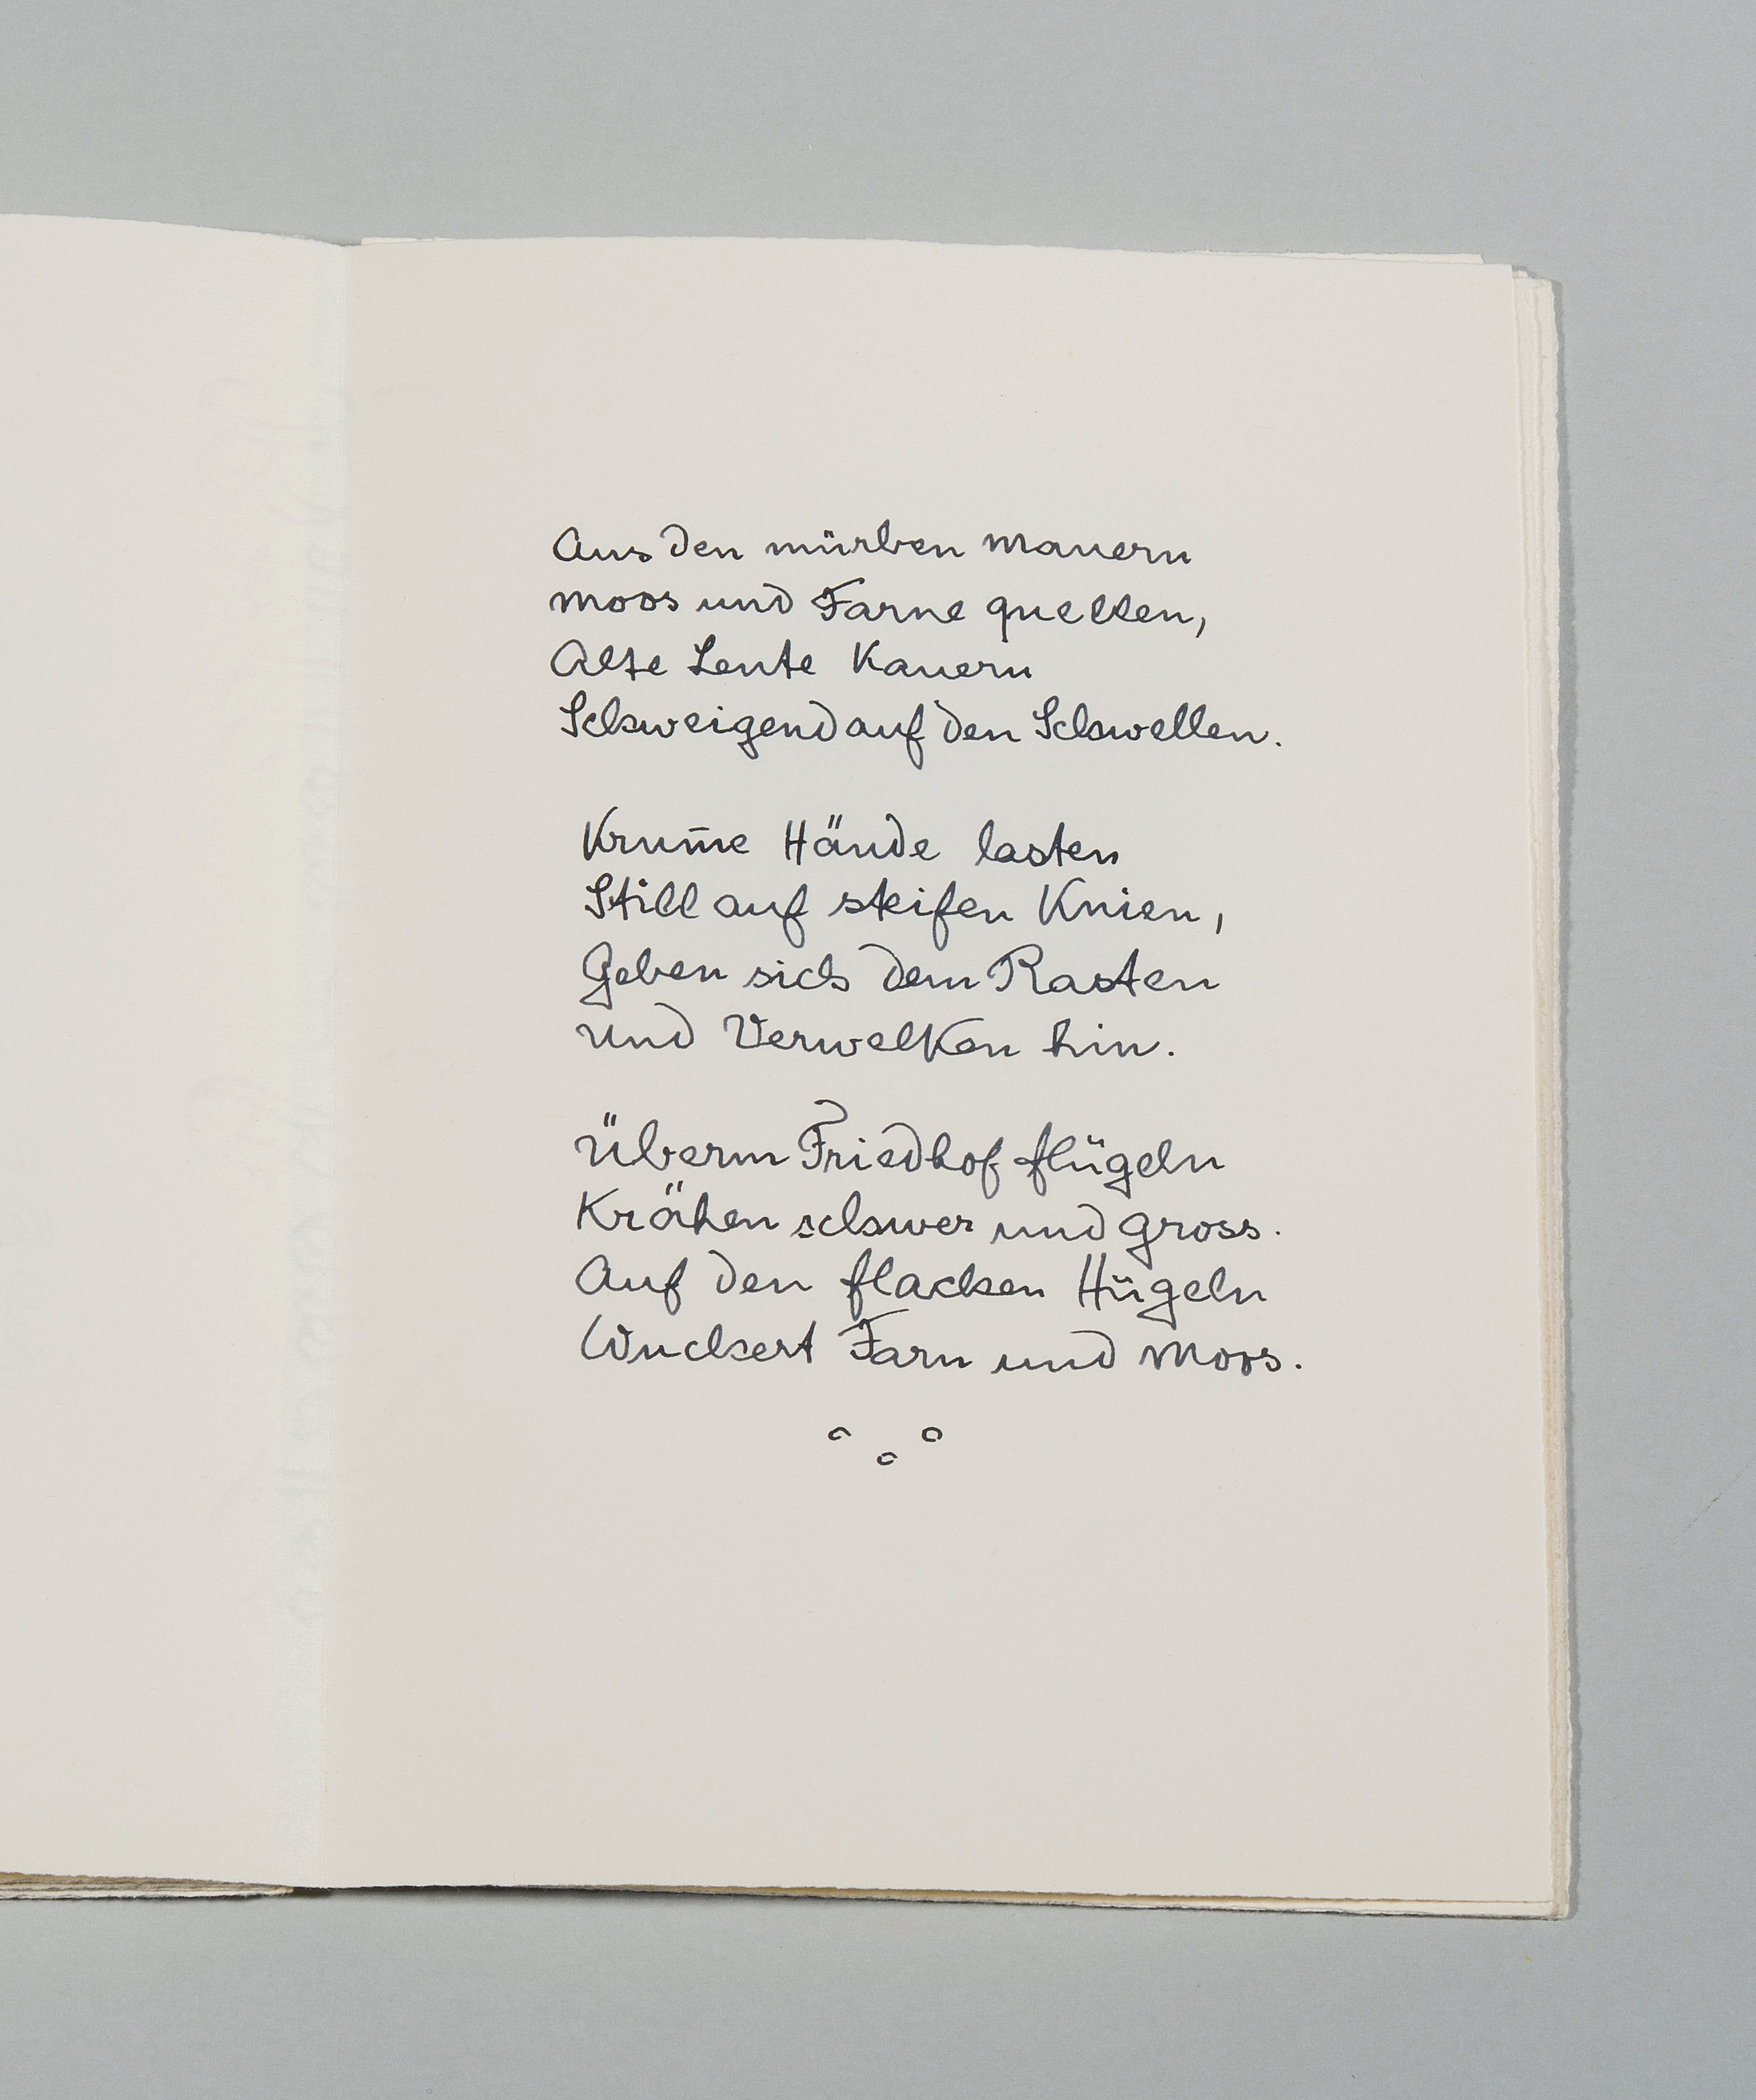 Aus den mürben Mauern
Moos und Farne quellen,
Alte Leute kauern
Schweigend auf den Schwellen.
Krum̄e Hände lasten
Still auf steifen Knien,
Geben sich dem Rasten
Und Verwelken hin.
Überm Friedhof flügeln
Krähen schwer und gross.
Auf den flachen Hügeln
Wuchert Farn und Moos.